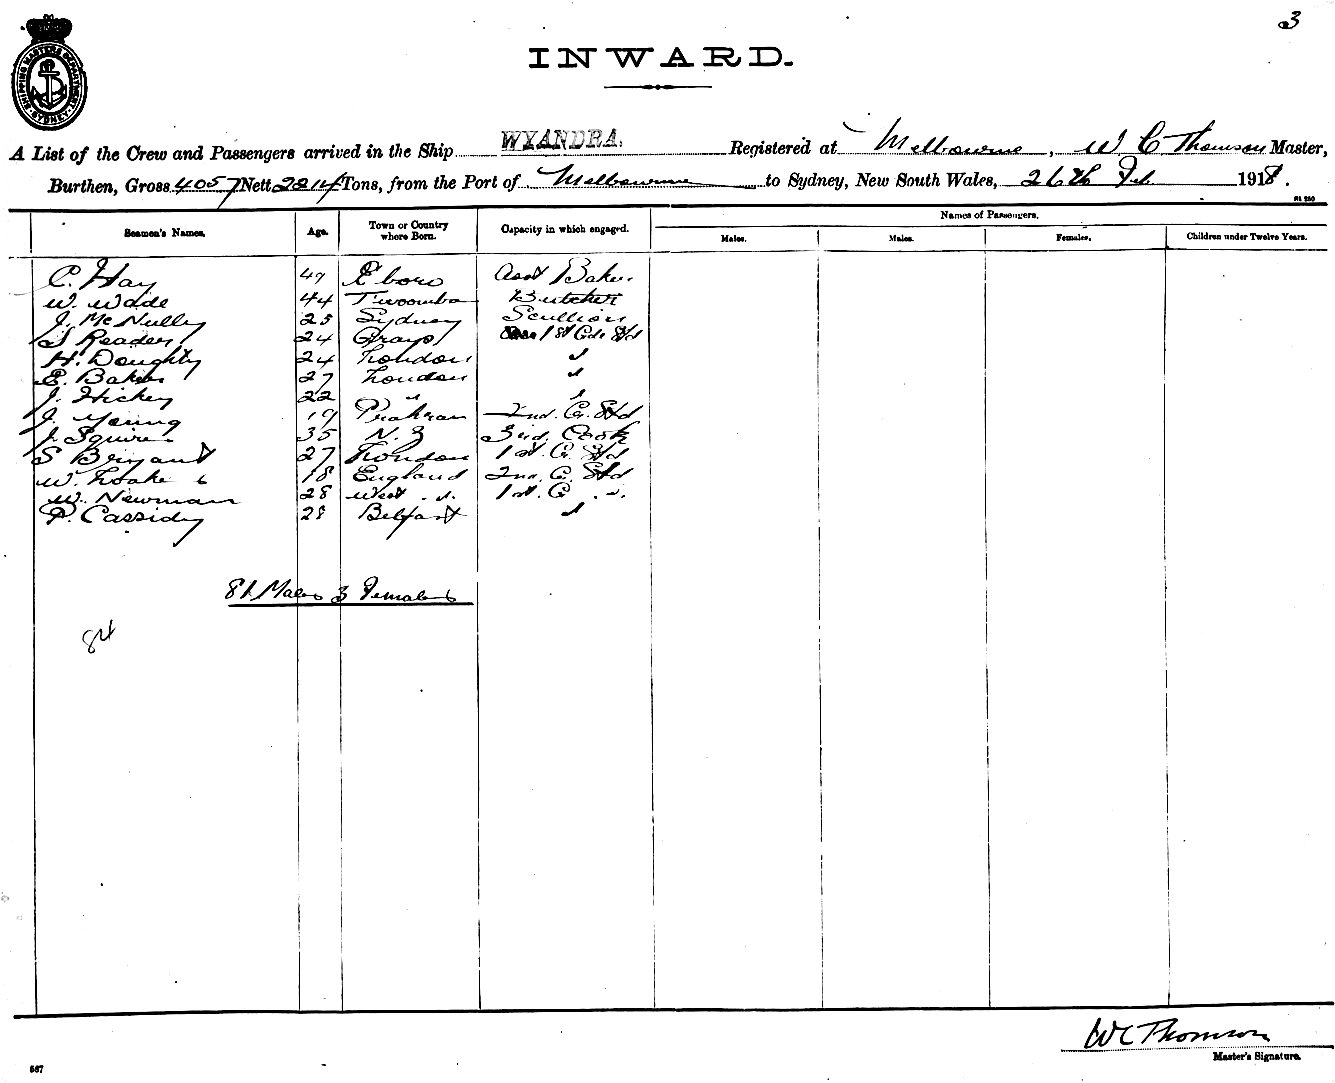 3
SHIPPING MASTERS DEPARTMENT SYDNEY
INWARD.
A List of the Crew and Passengers arrived in the Ship WYANDRA. Registered at Melbourne, W C Thomson Master,
Burthen, Gross 4057 Nett 2214 Tons, from the Port of Melbourne to Sydney, New South Wales, 26th Feb. 1918.
Seamen's Names. Age. Town or Country where Born. Capacity in which engaged. Names of Passengers.
Males. Males. Females. Children under Twelve Years.
C. Hay 47 Eboro Asst Baker
W. Wade 44 Butcher
J. McNulley 25 Sydney Scullion
Readers 24 Grays 1st Std
H. Doughty 24 London "
E. Baker 27 London "
J. Hickey 22 " "
J. Young 19 Prahran 2nd. C. Std
J. Squire 35 N.Z 3rd. Cook
S Bryant 27 London 1st. C. Std
W. 18 England 2nd. C. Std
W. Newman 28 West " 1st. C "
P. Cassidy 28 Belfast "
81 Males 3 Females
84
WC Thomson
Master's Signature.
567